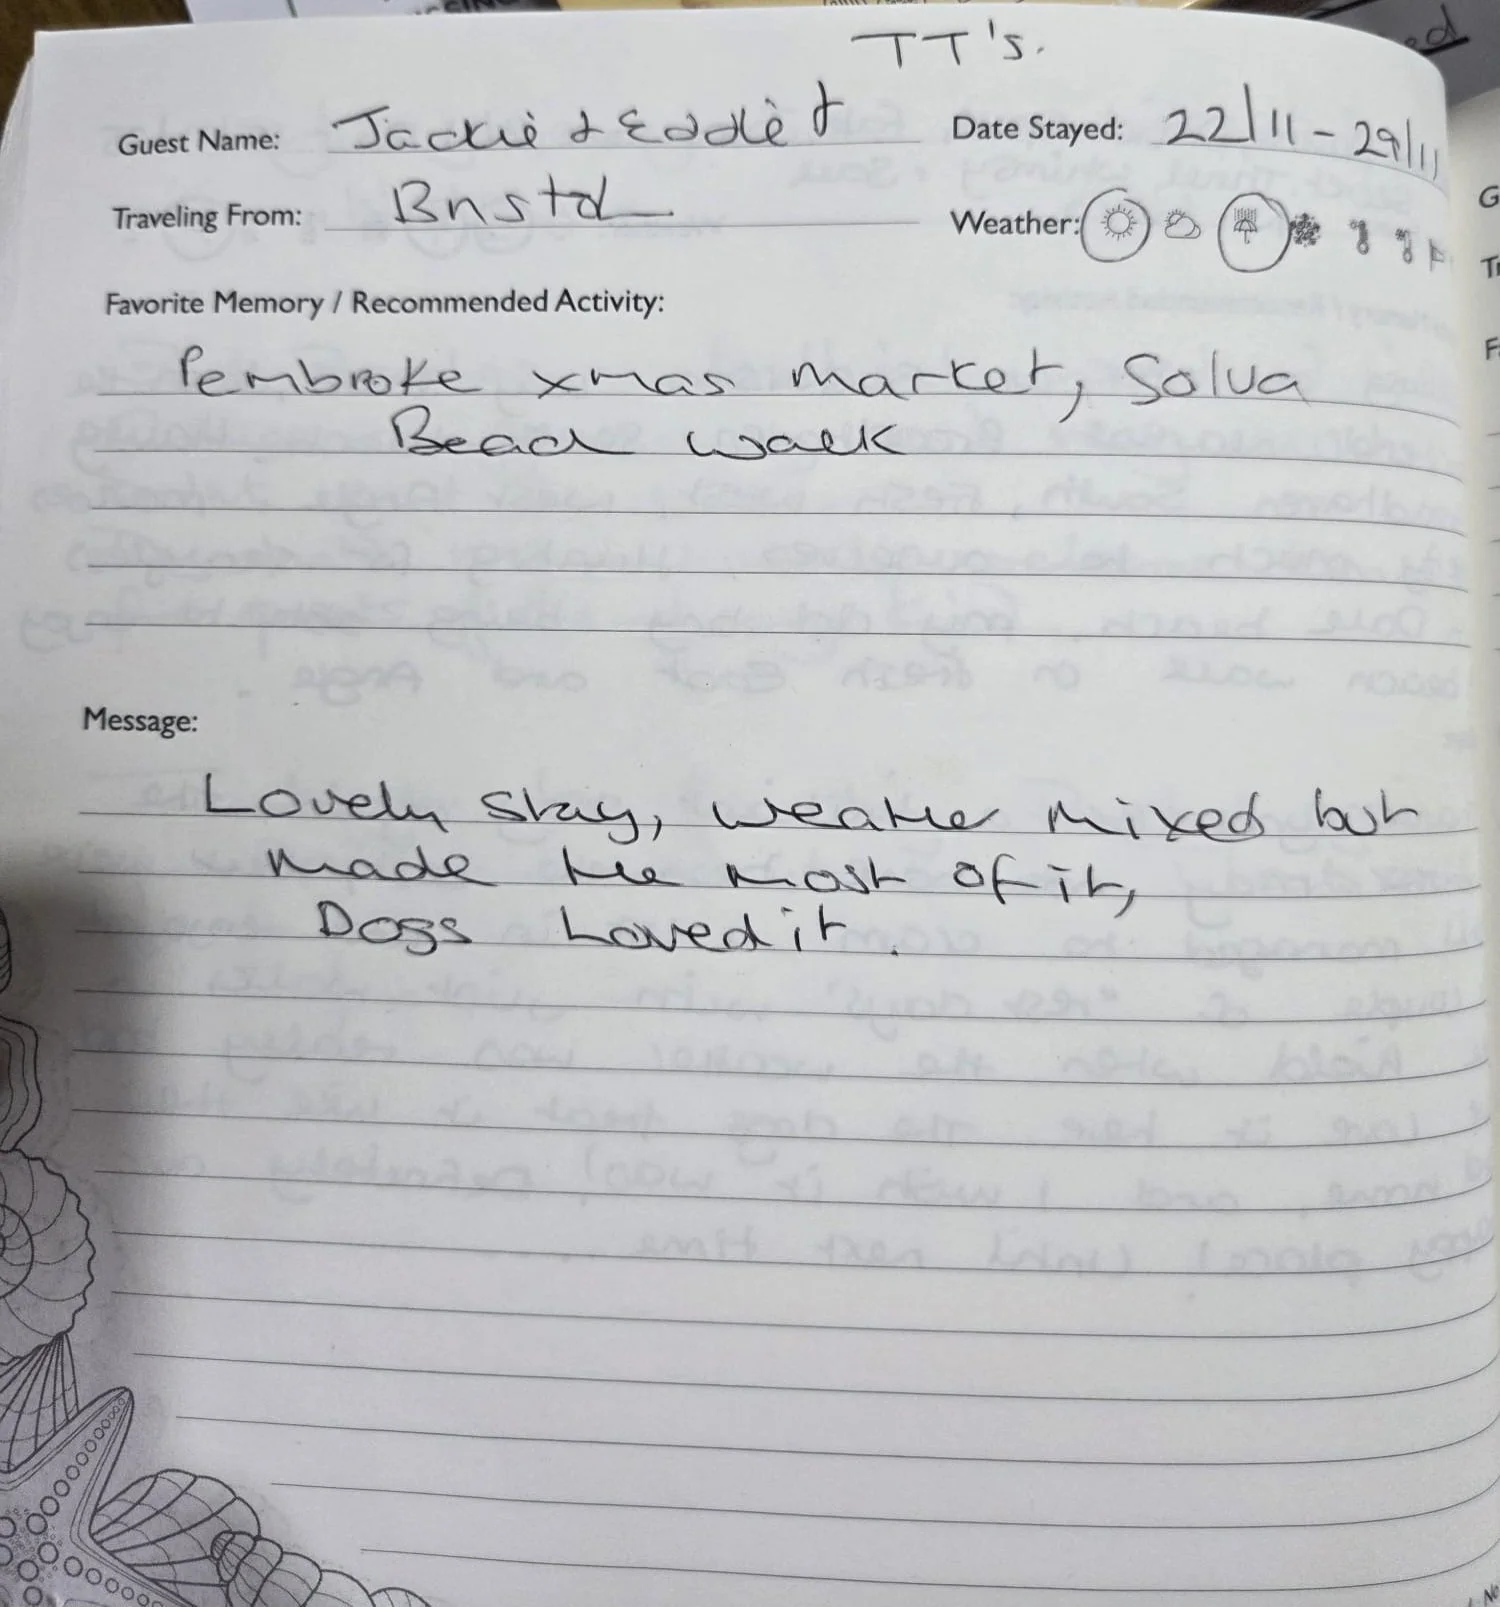 TT's.
Guest Name: Jackie & Eddie & Date Stayed: 22/11 - 29/11
Traveling From: Bristol Weather:
Favorite Memory / Recommended Activity:
Pembroke xmas market, Solva
Beach walk
Message:
Lovely stay, weather mixed but
made the most of it,
Dogs Loved it.